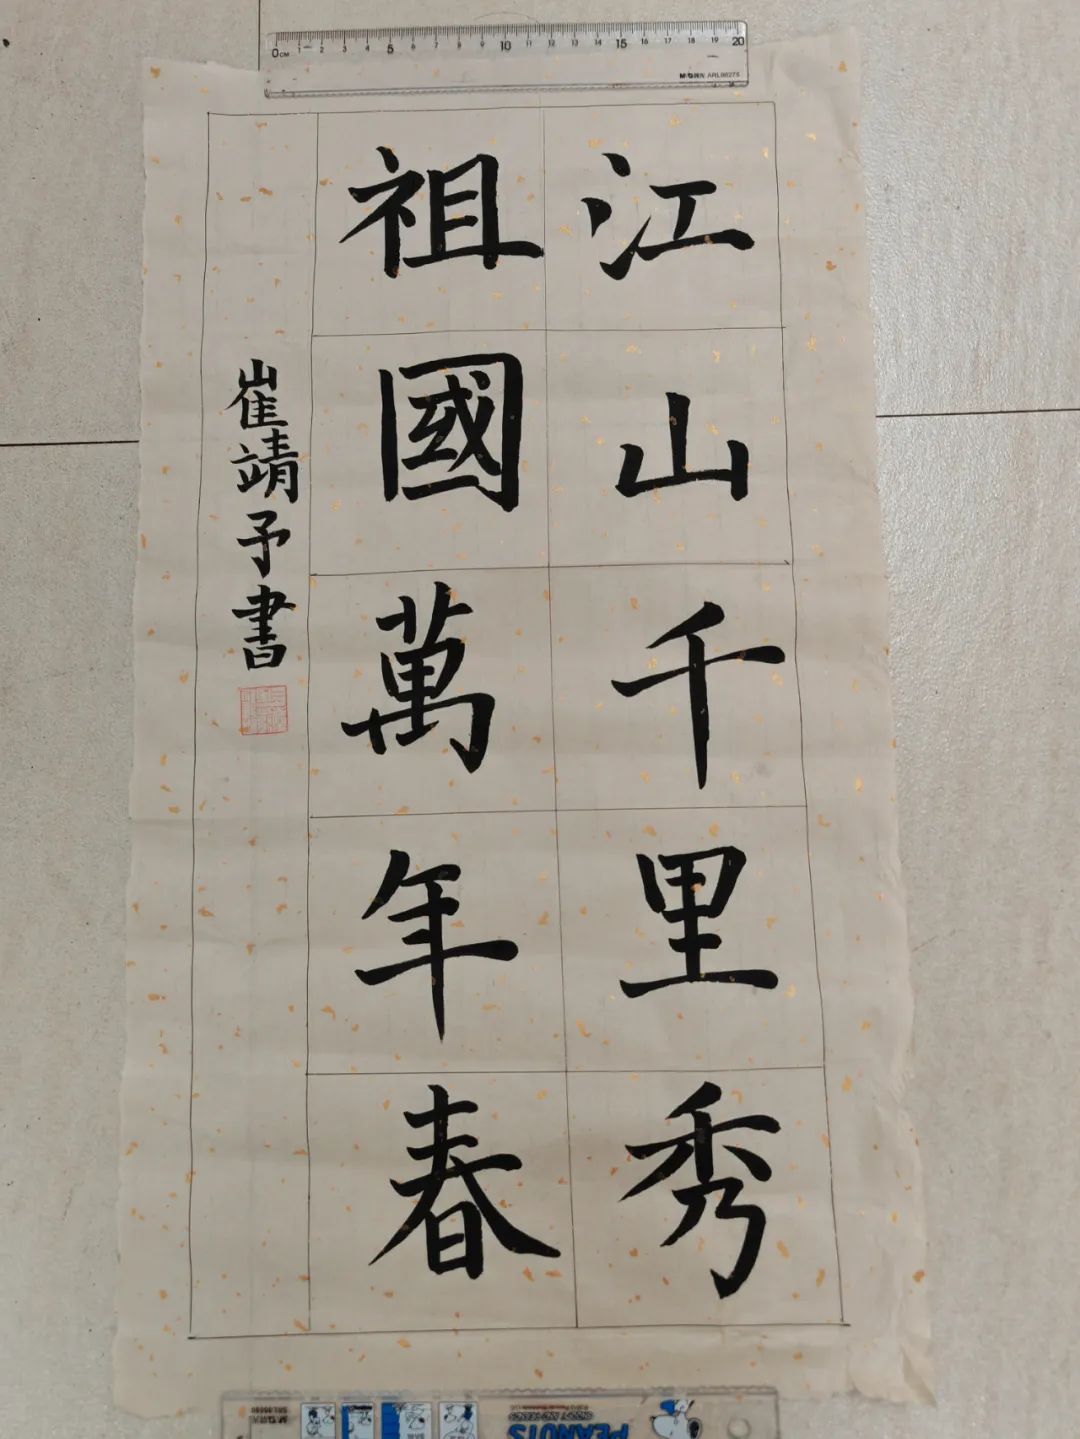 江山千里秀
祖國萬年春
崔靖予書
0CM 1 2 3 4 5 6 7 8 9 10 11 12 13 14 15 16 17 18 19 20
M&G晨光 ARL96275
PEANUTS